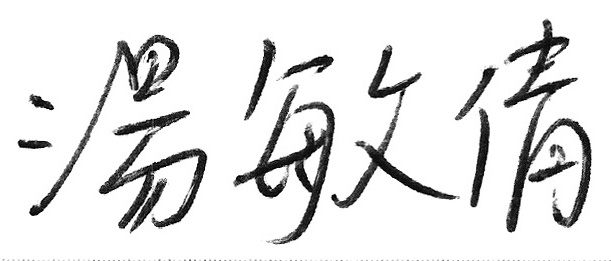 湯敏倩